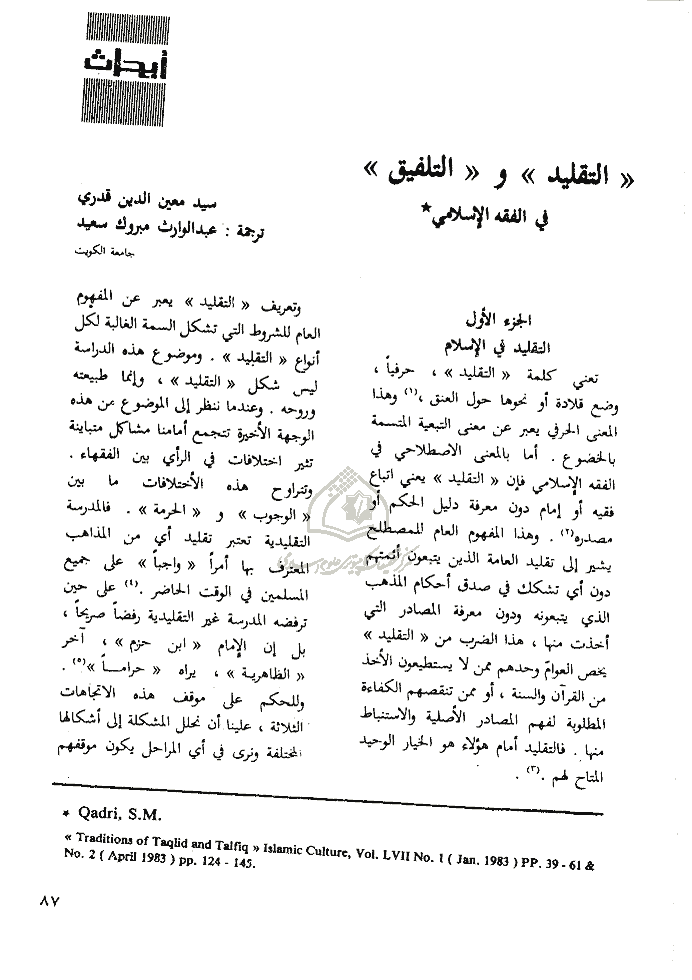 أبحاث
« التقليد » و « التلفيق »
في الفقه الإسلامي*
سيد معين الدين قدري
ترجمة : عبدالوارث مبروك سعيد
جامعة الكويت
الجزء الأول
التقليد في الإسلام
تعني كلمة « التقليد » ، حرفياً ،
وضع قلادة أو نحوها حول العنق ،(١) وهذا
المعنى الحرفي يعبر عن معنى التبعية المتسمة
بالخضوع . أما بالمعنى الاصطلاحي في
الفقه الإسلامي فإن « التقليد » يعني اتباع
فقيه أو إمام دون معرفة دليل الحكم أو
مصدره(٢) . وهذا المفهوم العام للمصطلح
يشير إلى تقليد العامة الذين يتبعون أئمتهم
دون أي تشكك في صدق أحكام المذهب
الذي يتبعونه ودون معرفة المصادر التي
أخذت منها ، هذا الضرب من « التقليد »
يخص العوامّ وحدهم ممن لا يستطيعون الأخذ
من القرآن والسنة ، أو ممن تنقصهم الكفاءة
المطلوبة لفهم المصادر الأصلية والاستنباط
منها . فالتقليد أمام هؤلاء هو الخيار الوحيد
المتاح لهم .(٣) .
وتعريف « التقليد » يعبر عن المفهوم
العام للشروط التي تشكل السمة الغالبة لكل
أنواع « التقليد » . وموضوع هذه الدراسة
ليس شكل « التقليد » ، وإنما طبيعته
وروحه . وعندما ننظر إلى الموضوع من هذه
الوجهة الأخيرة تتجمع أمامنا مشاكل متباينة
تثير اختلافات في الرأي بين الفقهاء .
وتتراوح هذه الأختلافات ما بين
« الوجوب » و « الحرمة » . فالمدرسة
التقليدية تعتبر تقليد أي من المذاهب
المعترف بها أمراً « واجباً » على جميع
المسلمين في الوقت الحاضر .(٤) على حين
ترفضه المدرسة غير التقليدية رفضاً صريحاً ،
بل إن الإمام « ابن حزم » ، آخر
« الظاهرية » ، يراه « حراماً »(٥) .
وللحكم على موقف هذه الاتجاهات
الثلاثة ، علينا أن نحلل المشكلة إلى أشكالها
المختلفة ونرى في أي المراحل يكون موقفهم
* Qadri, S.M.
« Traditions of Taqlid and Talfiq » Islamic Culture, Vol. LVII No. 1 ( Jan. 1983 ) PP. 39 - 61 &
No. 2 ( April 1983 ) pp. 124 - 145.
٨٧